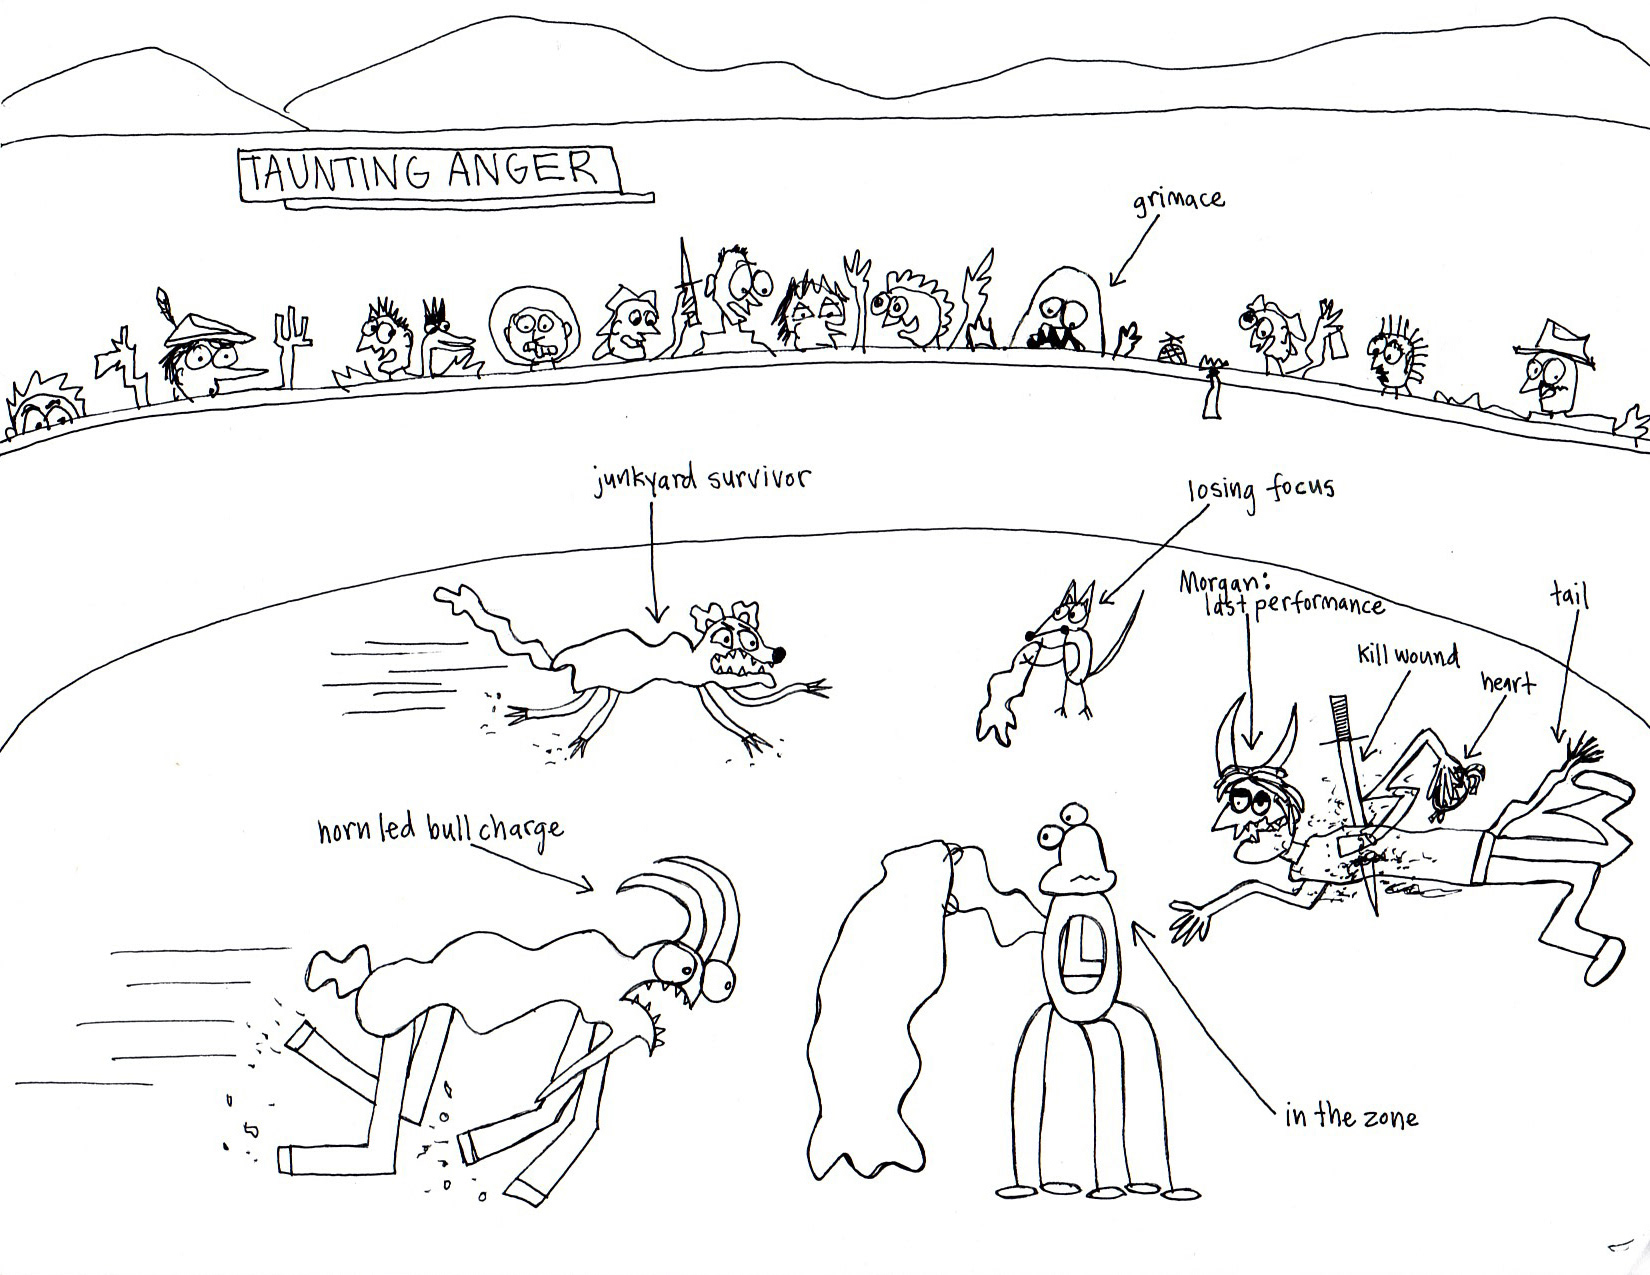 TAUNTING ANGER
grimace
junkyard survivor
losing focus
Morgan:
last performance
tail
kill wound
heart
horn led bull charge
L
in the zone